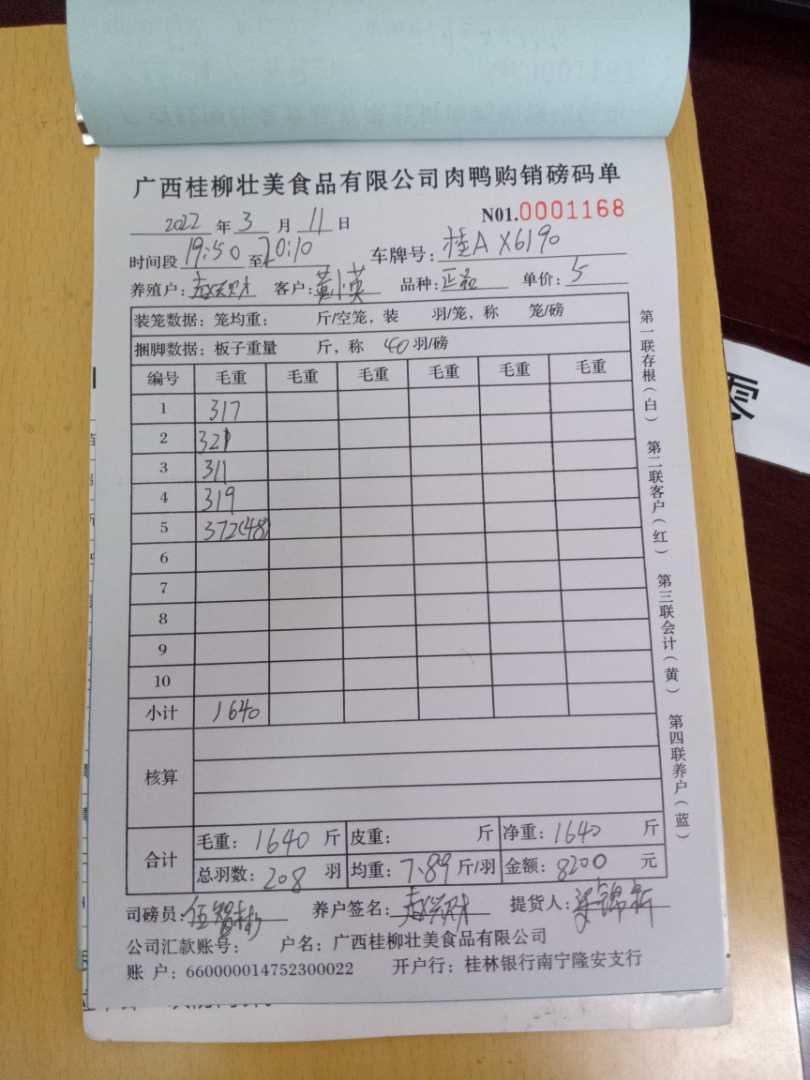 广西桂柳壮美食品有限公司肉鸭购销磅码单
2022 年 3 月 11 日 N01.0001168
时间段 19:50 至 20:10 车牌号: 桂A X6190
养殖户: 赵兴财 客户: 黄小英 品种: 正品 单价: 5
装笼数据: 笼均重: 斤/空笼, 装 羽/笼, 称 笼/磅
捆脚数据: 板子重量 斤, 称 40 羽/磅
编号 毛重 毛重 毛重 毛重 毛重 毛重
1 317
2 321
3 311
4 319
5 372(48)
6
7
8
9
10
小计 1640
核算
合计 毛重: 1640 斤 皮重: 斤 净重: 1640 斤
总羽数: 208 羽 均重: 7.89 斤/羽 金额: 8200 元
司磅员: 伍 养户签名: 赵兴财 提货人: 梁锦新
公司汇款账号: 户名: 广西桂柳壮美食品有限公司
账 户: 660000014752300022 开户行: 桂林银行南宁隆安支行
第一联存根(白) 第二联客户(红) 第三联会计(黄) 第四联养户(蓝)
零